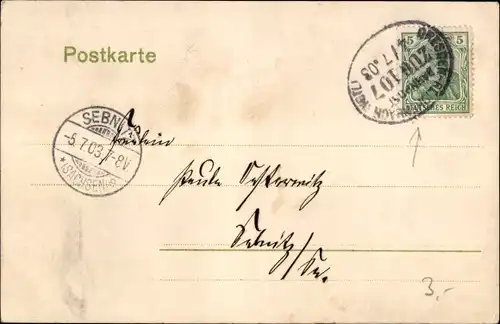 Postkarte
5 5
DEUTSCHES REICH
ZUG 107
4/7 03
SEBNITZ
-5.7.03. 7-8V
*(SACHSEN)a
Fräulein
Paula
Sebnitz/
Sa.
3,-